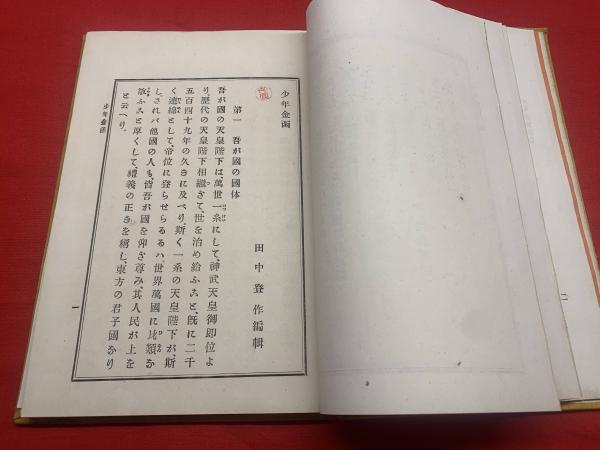 少年金函
第一　吾が國の國体
田中登作編輯
吾が國の天皇陛下は、萬世一系にして、神武天皇御即位よ
り、歴代の天皇陛下相繼ぎて、世を治め給ふこと、既に二千
五百四十九年の久きに及べり、斯く一系の天皇陛下が、斯
く連綿として、帝位に登らせらるるハ、世界萬國に比類な
し、されバ他國の人も、皆吾が國を仰ぎ尊み、其人民が上を
敬ふこと厚くして、禮義の正きを稱し、東方の君子國なり
と云へり。
少年金函
一